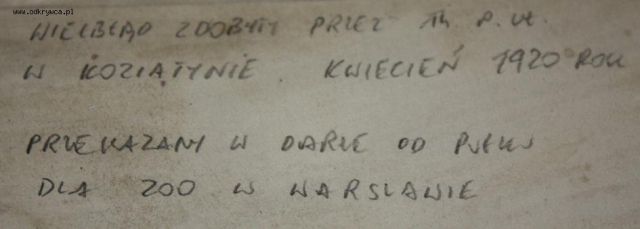 www.odkrywca.pl
WIELBŁĄD ZDOBYTY PRZEZ 14 P. UŁ.
W KOZIATYNIE. KWIECIEŃ 1920 ROKU
PRZEKAZANY W DARZE OD PUŁKU
DLA ZOO W WARSZAWIE